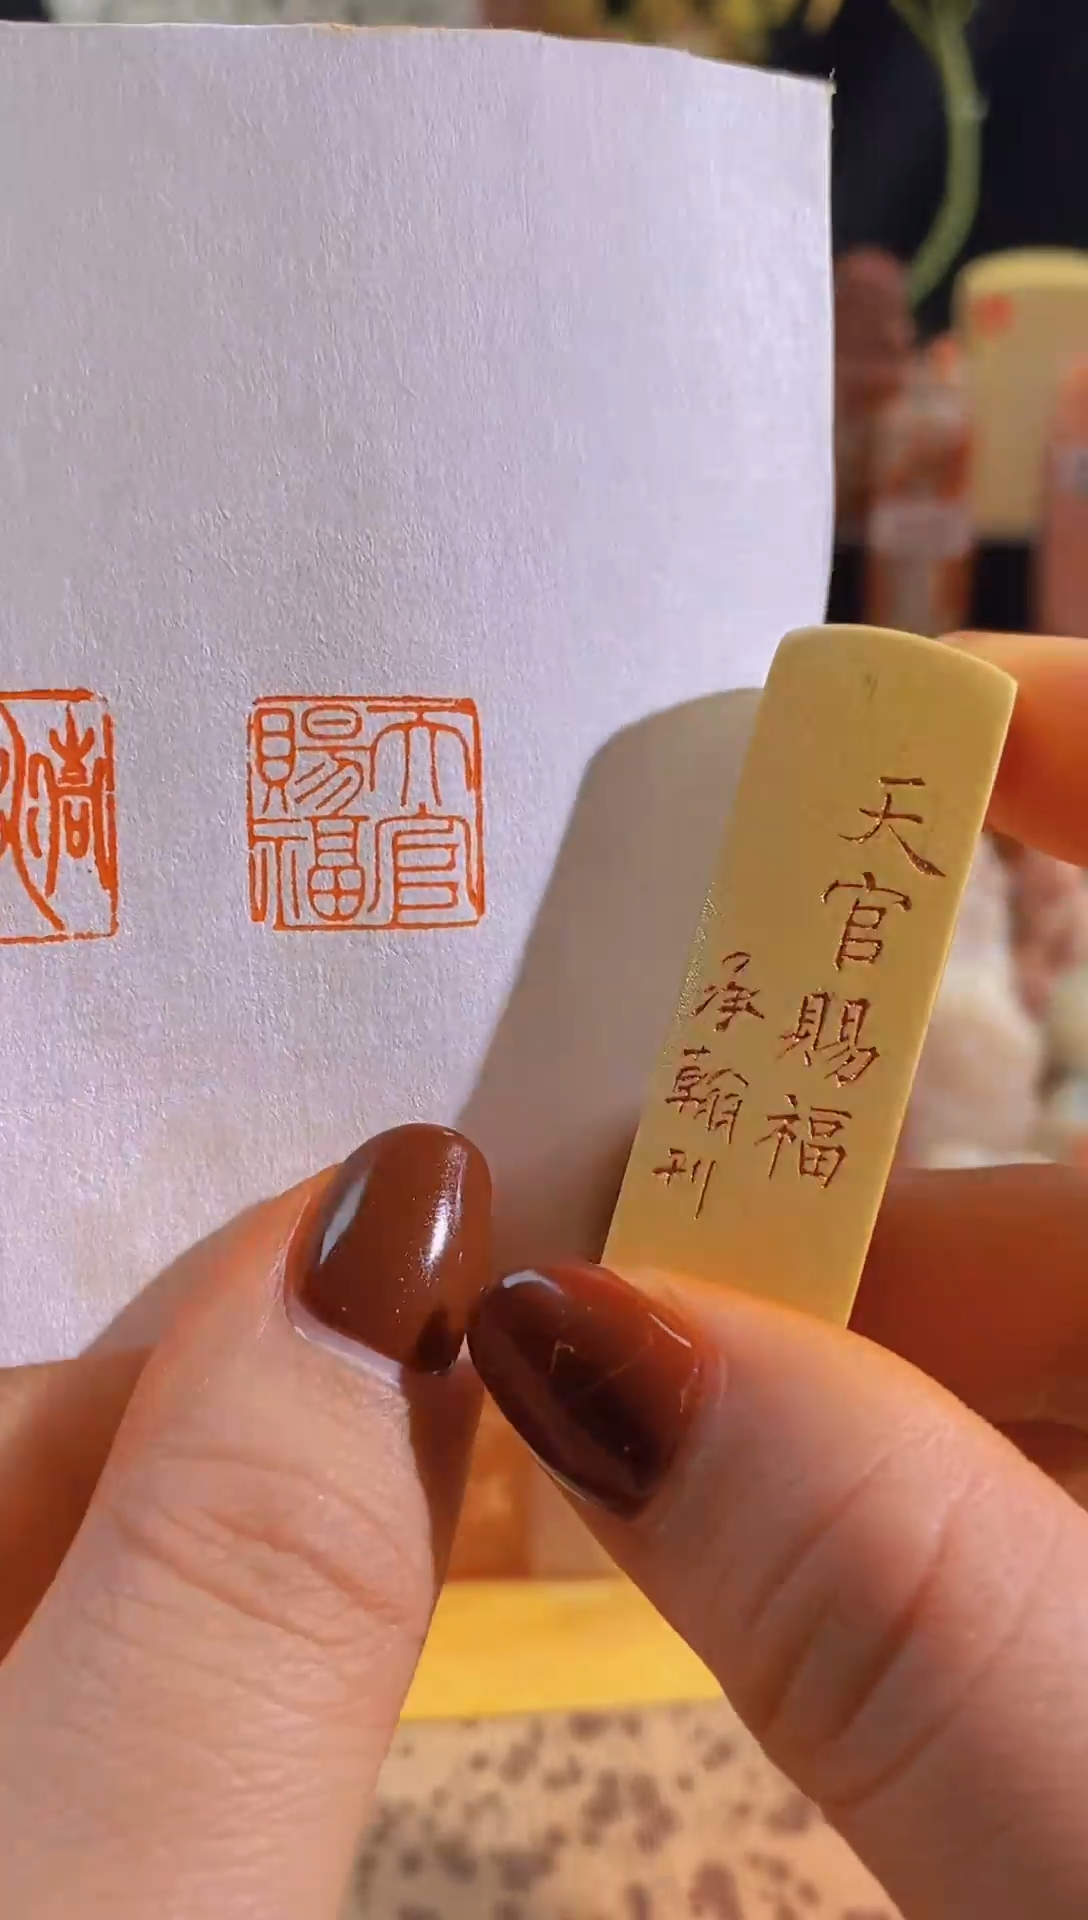 天官賜福
天官賜福
承翰刊